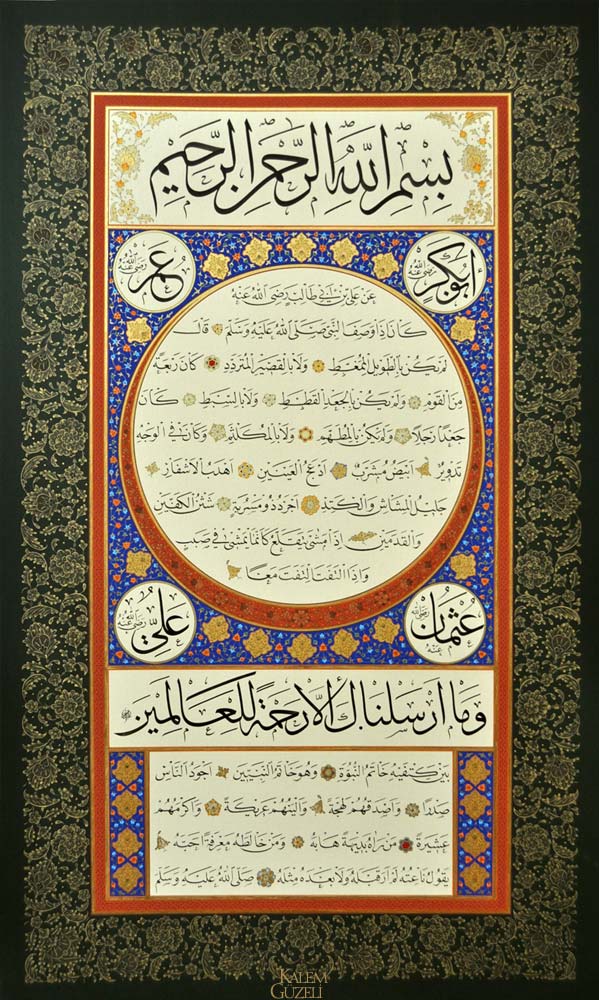 بِسْمِ اللهِ الرَّحْمٰنِ الرَّحِيمِ
أبو بكر رضى الله عنه
عمر رضى الله عنه
عن على بن ابى طالب رضى الله عنه
كان اذا وصف النبى صلى الله عليه وسلم قال
لم يكن بالطويل الممغط ولا بالقصير المتردد كان ربعة
من القوم ولم يكن بالجعد القطط ولا بالسبط كان
جعدا رجلا ولم يكن بالمطهم ولا بالمكلثم وكان فى الوجه
تدوير ابيض مشرب ادعج العينين اهدب الاشفار
جليل المشاش والكتد اجرد ذو مسربة شثن الكفين
والقدمين اذا مشى يتقلع كانما يمشى فى صبب
واذا التفت التفت معا
عثمان رضى الله عنه
على رضى الله عنه
وما ارسلناك الا رحمة للعالمين
بين كتفيه خاتم النبوة وهو خاتم النبيين اجود الناس
صدرا واصدقهم لهجة والينهم عريكة واكرمهم
عشيرة من راه بديهة هابه ومن خالطه معرفة احبه
يقول ناعته لم ار قبله ولا بعده مثله صلى الله عليه وسلم
KALEM
GÜZELİ